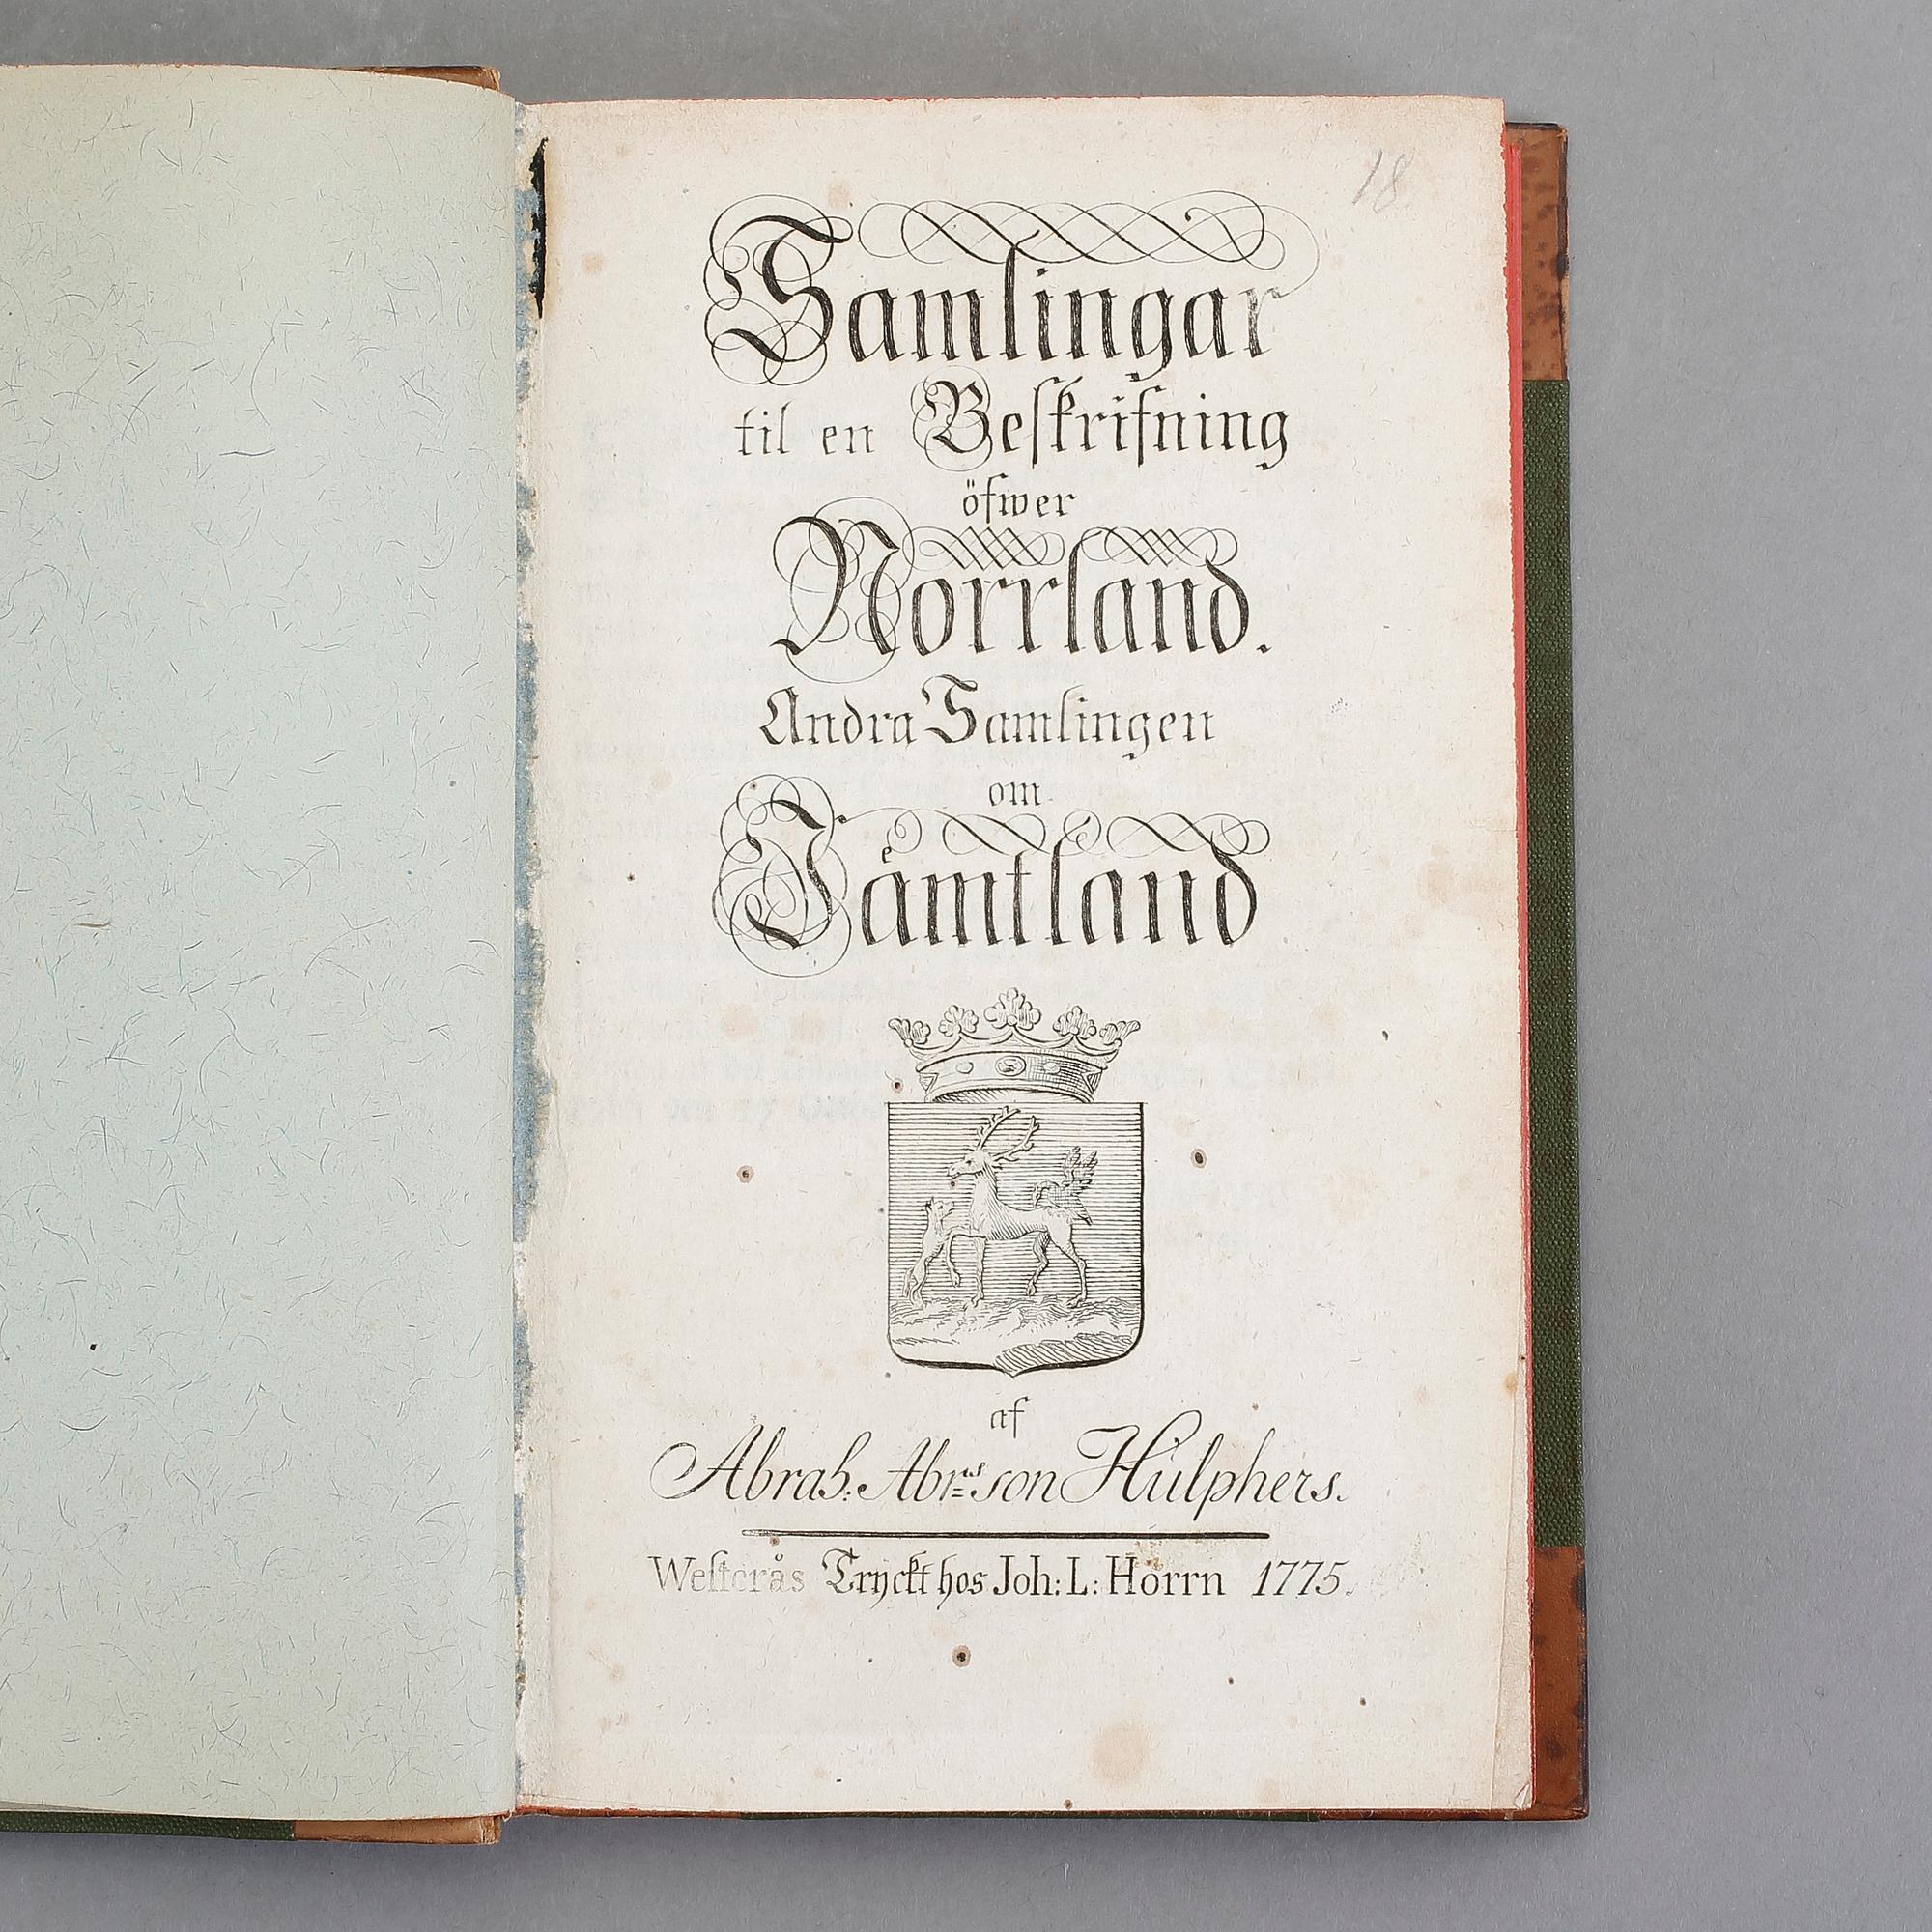 18.
Samlingar
til en Beſkrifning
öfwer
Norrland.
Andra Samlingen
om
Jaͤmtland
af
Abrah: Abr:ˢson Hülphers.
Weſterås Tryckt hos Joh: L: Horrn 1775.